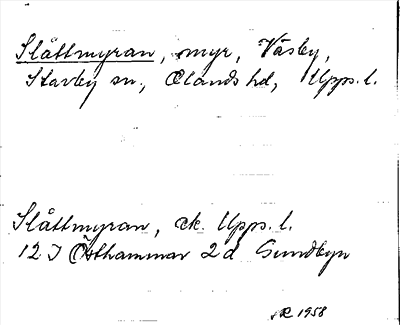 Slåttmyran, myr, Väsby,
Stavby sn., Olands hd, Upps. l.
Slåttmyran, ek. Upps. l.
12 I Östhammar 2 d Sundbyn
1958